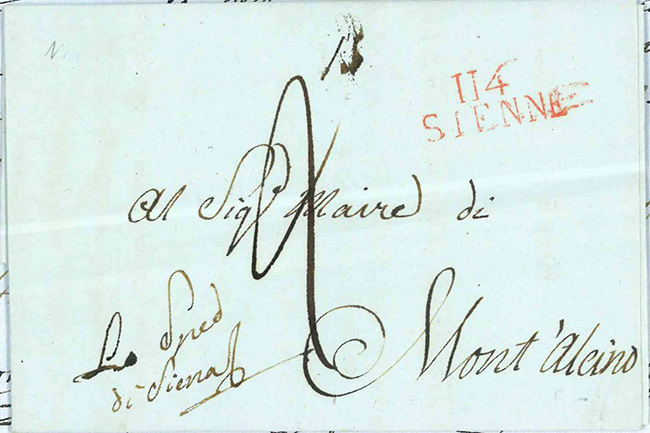 114
SIENNE
Al Sigr Maire di
Mont'Alcino
Lo Sped
di Siena